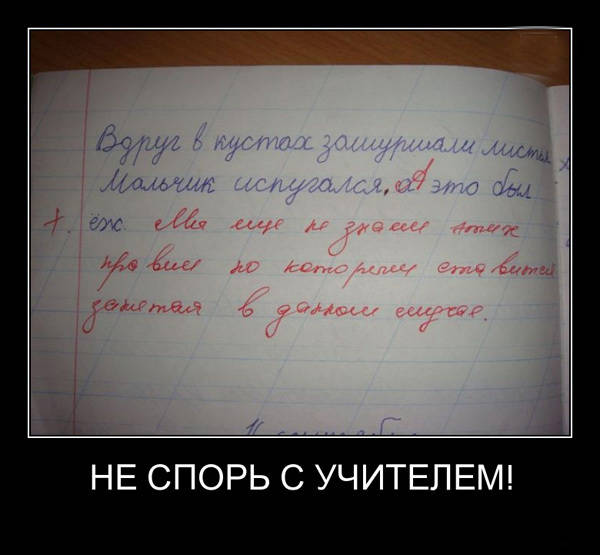 Вдруг в кустах зашуршали листья
Мальчик испугался, а это был
ёж. Мы еще не знаем этих
правил по которым ставится
запятая в данном случае.
НЕ СПОРЬ С УЧИТЕЛЕМ!